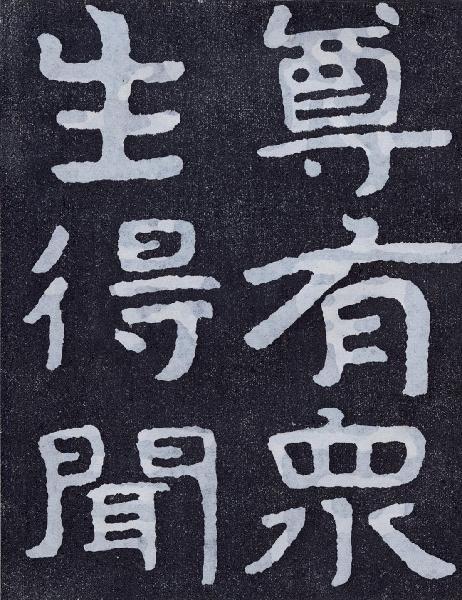 尊有眾
生得聞